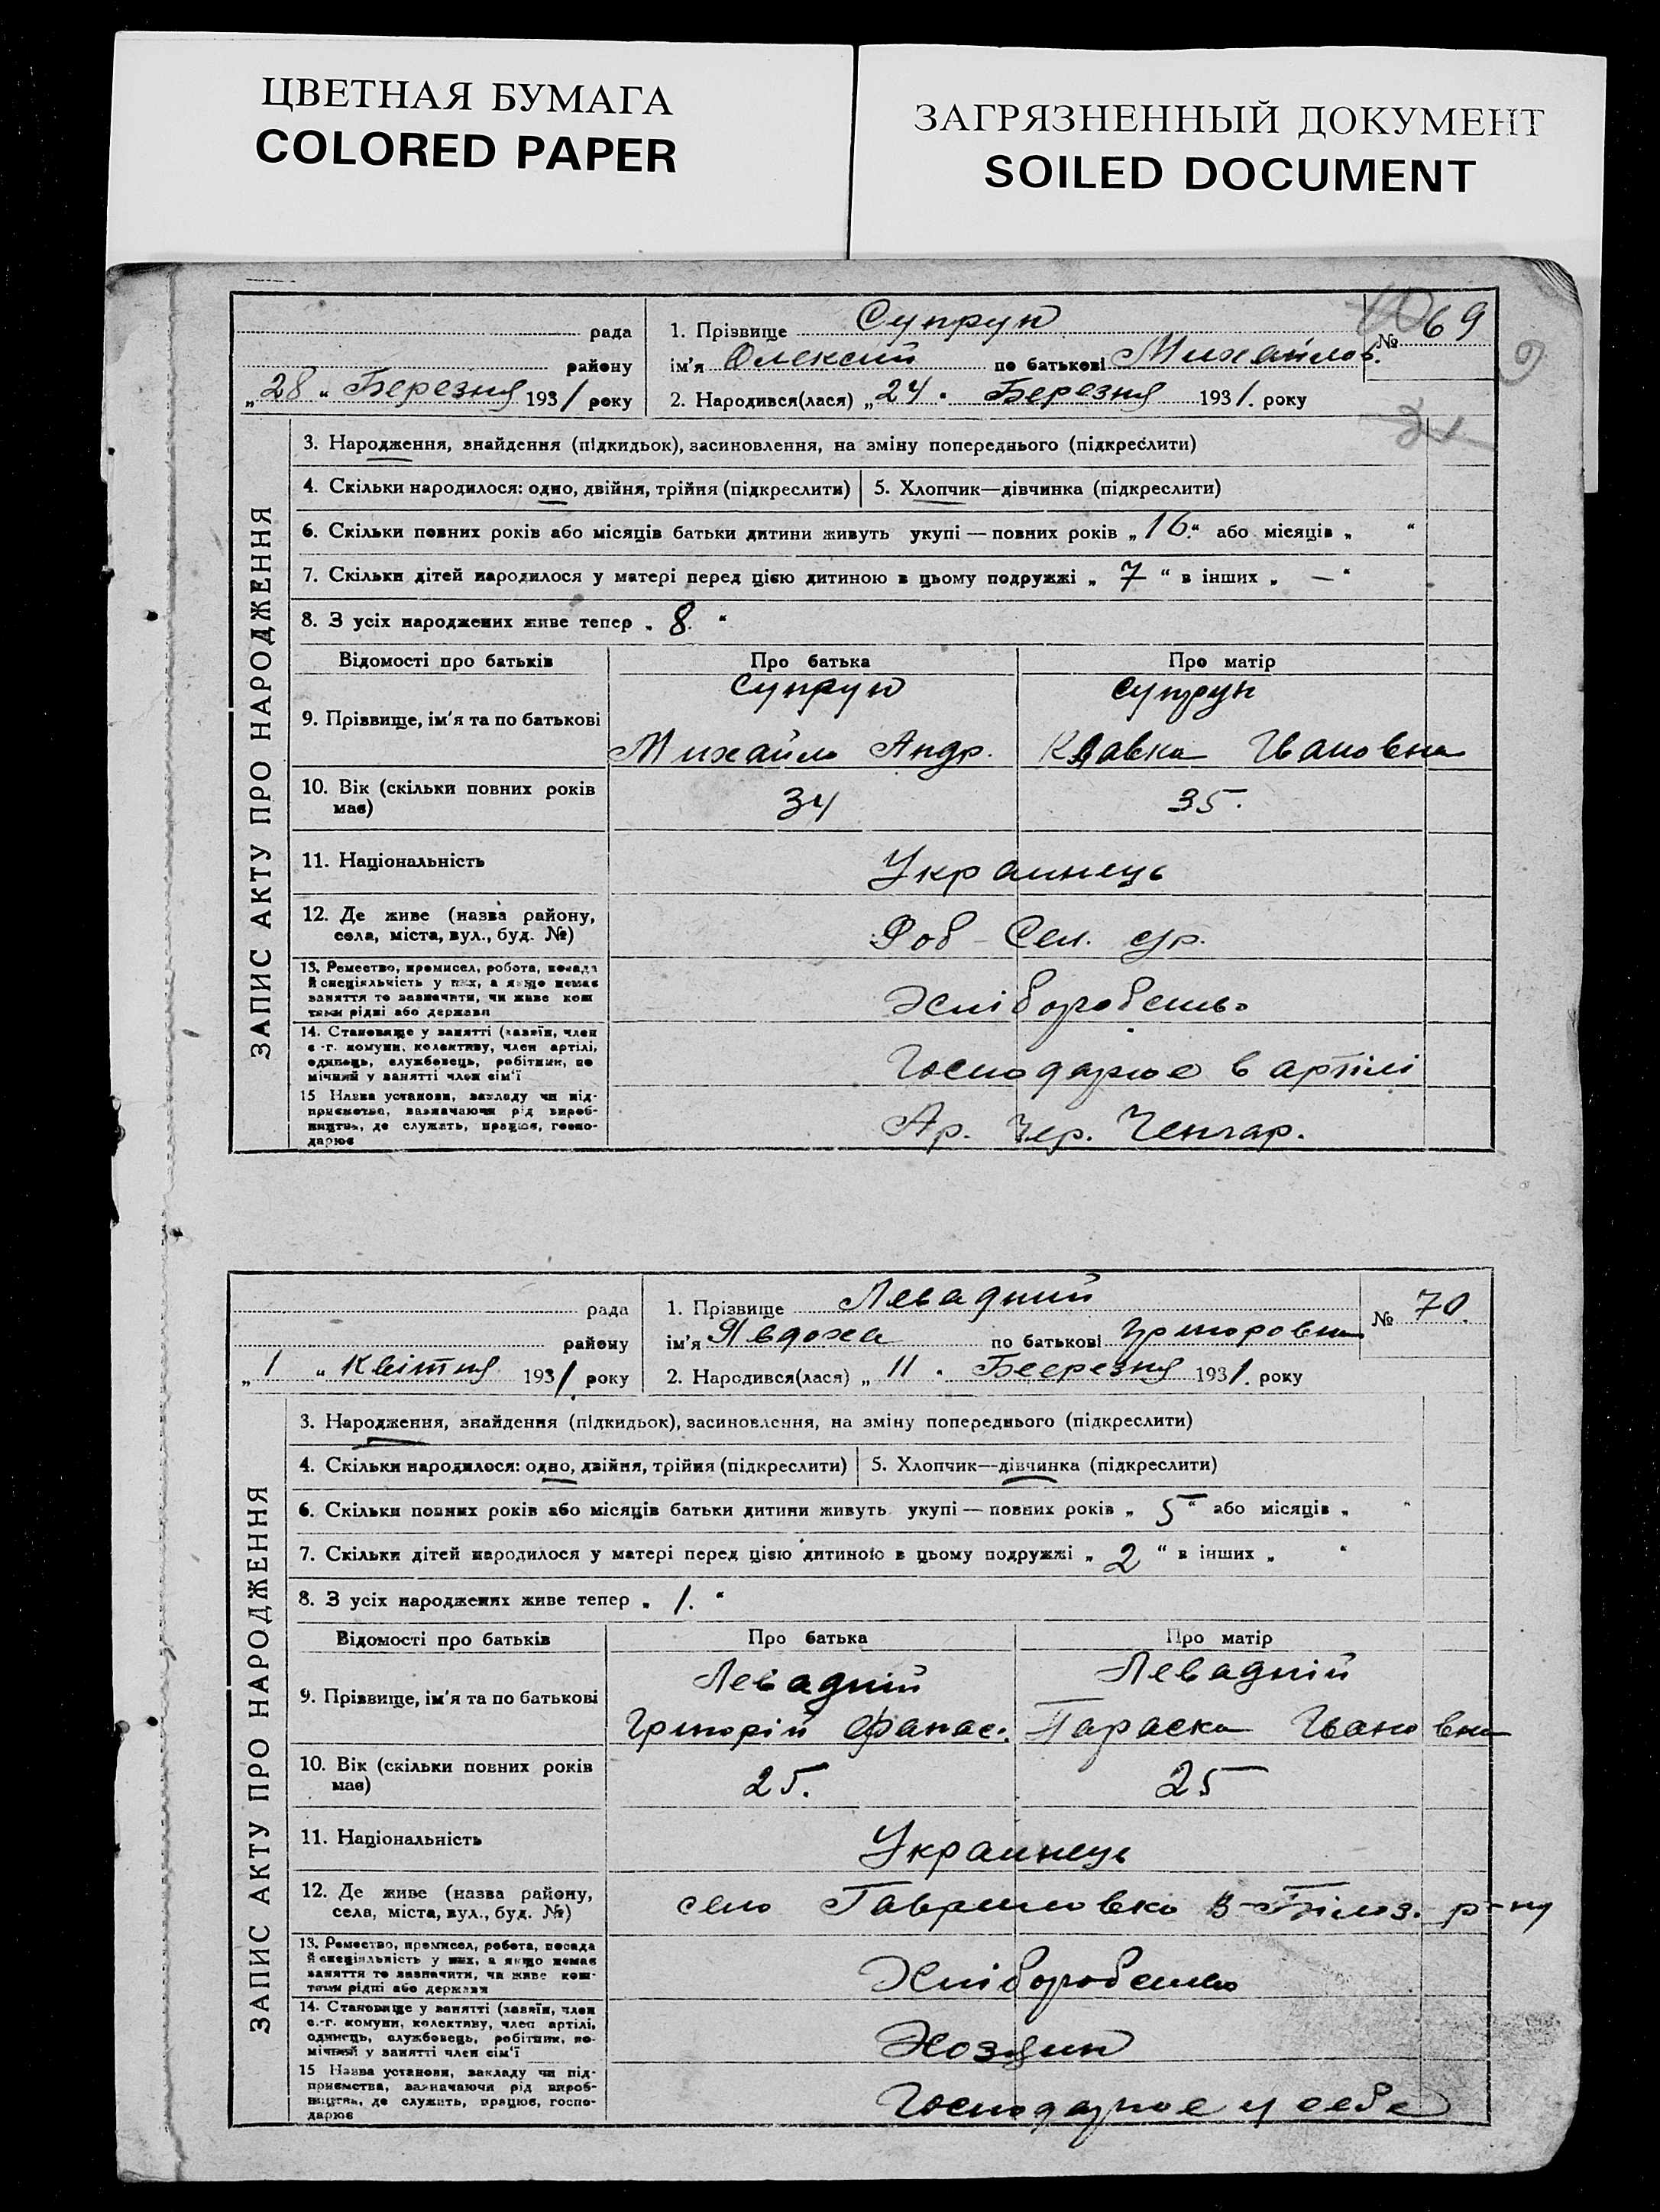 ЦВЕТНАЯ БУМАГА
COLORED PAPER
ЗАГРЯЗНЕННЫЙ ДОКУМЕНТ
SOILED DOCUMENT
ЗАПИС АКТУ ПРО НАРОДЖЕННЯ
рада
району
„28“ Березня 1931 року
1. Прізвище Супрун
№ 69
ім'я Олексій по батькові Михайлов.
2. Народився(лася) „24“ Березня 1931. року
3. Народження, знайдення (підкидьок), засиновлення, на зміну попереднього (підкреслити)
4. Скільки народилося: одно, двійня, трійня (підкреслити) 5. Хлопчик—дівчинка (підкреслити)
6. Скільки повних років або місяців батьки дитини живуть укупі — повних років „16“ або місяців „ “
7. Скільки дітей народилося у матері перед цією дитиною в цьому подружжі „7“ в інших „—“
8. З усіх народжених живе тепер „8.“
Відомості про батьків Про батька Про матір
9. Прізвище, ім'я та по батькові
Супрун Супрун
Михайло Андр. Клавка Івановна
10. Вік (скільки повних років має) 34 35.
11. Національність Украинець
12. Де живе (назва району, села, міста, вул., буд. №)
13. Ремество, промисел, робота, посада й спеціяльність у них, а якщо немає заняття то зазначити, чи живе коштами рідні або держави Хліборобство
14. Становище у занятті (хазяїн, член с.-г. комуни, колективу, член артілі, одинець, службовець, робітник, помічний у занятті член сім'ї Господарює в артілі
15 Назва установи, закладу чи підприємства, зазначаючи рід виробництва, де служить, працює, господарює Ар. Чер.
ЗАПИС АКТУ ПРО НАРОДЖЕННЯ
рада
району
„1“ Квітня 1931. року
1. Прізвище Левадний
№ 70.
ім'я Явдоха по батькові Григоровна
2. Народився(лася) „11“ Беерезня 1931. року
3. Народження, знайдення (підкидьок), засиновлення, на зміну попереднього (підкреслити)
4. Скільки народилося: одно, двійня, трійня (підкреслити) 5. Хлопчик—дівчинка (підкреслити)
6. Скільки повних років або місяців батьки дитини живуть укупі — повних років „5“ або місяців „ “
7. Скільки дітей народилося у матері перед цією дитиною в цьому подружжі „2“ в інших „ “
8. З усіх народжених живе тепер „1.“
Відомості про батьків Про батька Про матір
9. Прізвище, ім'я та по батькові
Левадній Левадній
Григорій Фанас. Параска Івановна
10. Вік (скільки повних років має) 25. 25
11. Національність Украинець
12. Де живе (назва району, села, міста, вул., буд. №) село Гавриловка В-Білоз. р-ну
13. Ремество, промисел, робота, посада й спеціяльність у них, а якщо немає заняття то зазначити, чи живе коштами рідні або держави Хліборобство
14. Становище у занятті (хазяїн, член с.-г. комуни, колективу, член артілі, одинець, службовець, робітник, помічний у занятті член сім'ї Хозяин
15 Назва установи, закладу чи підприємства, зазначаючи рід виробництва, де служить, працює, господарює Господарює у себе